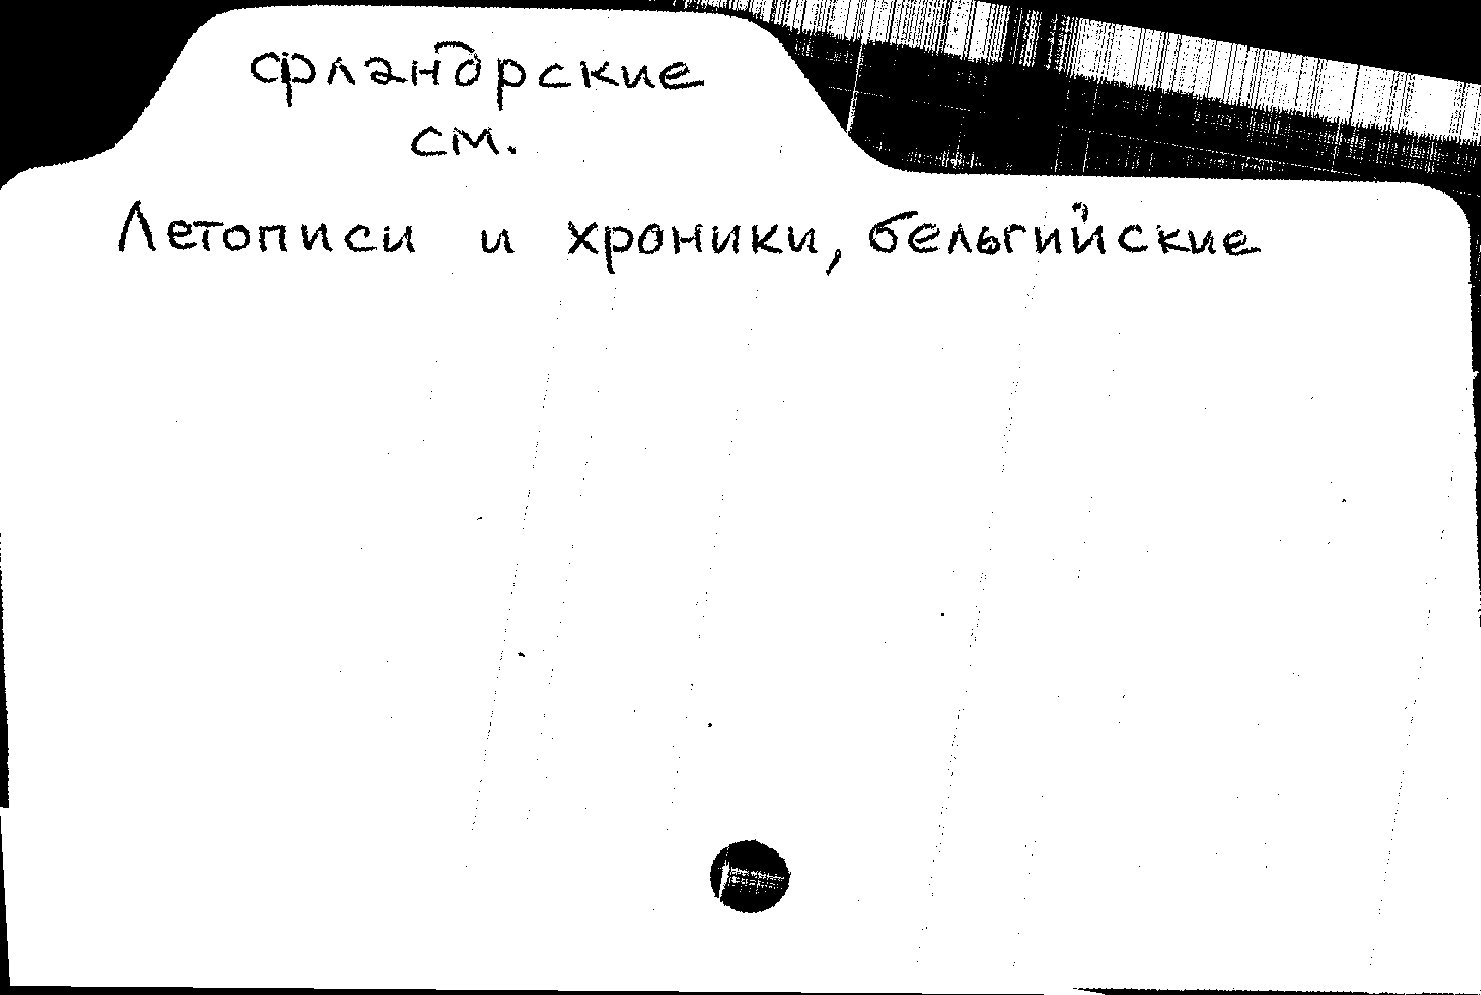 фландрские
см.
Летописи и хроники, бельгийские